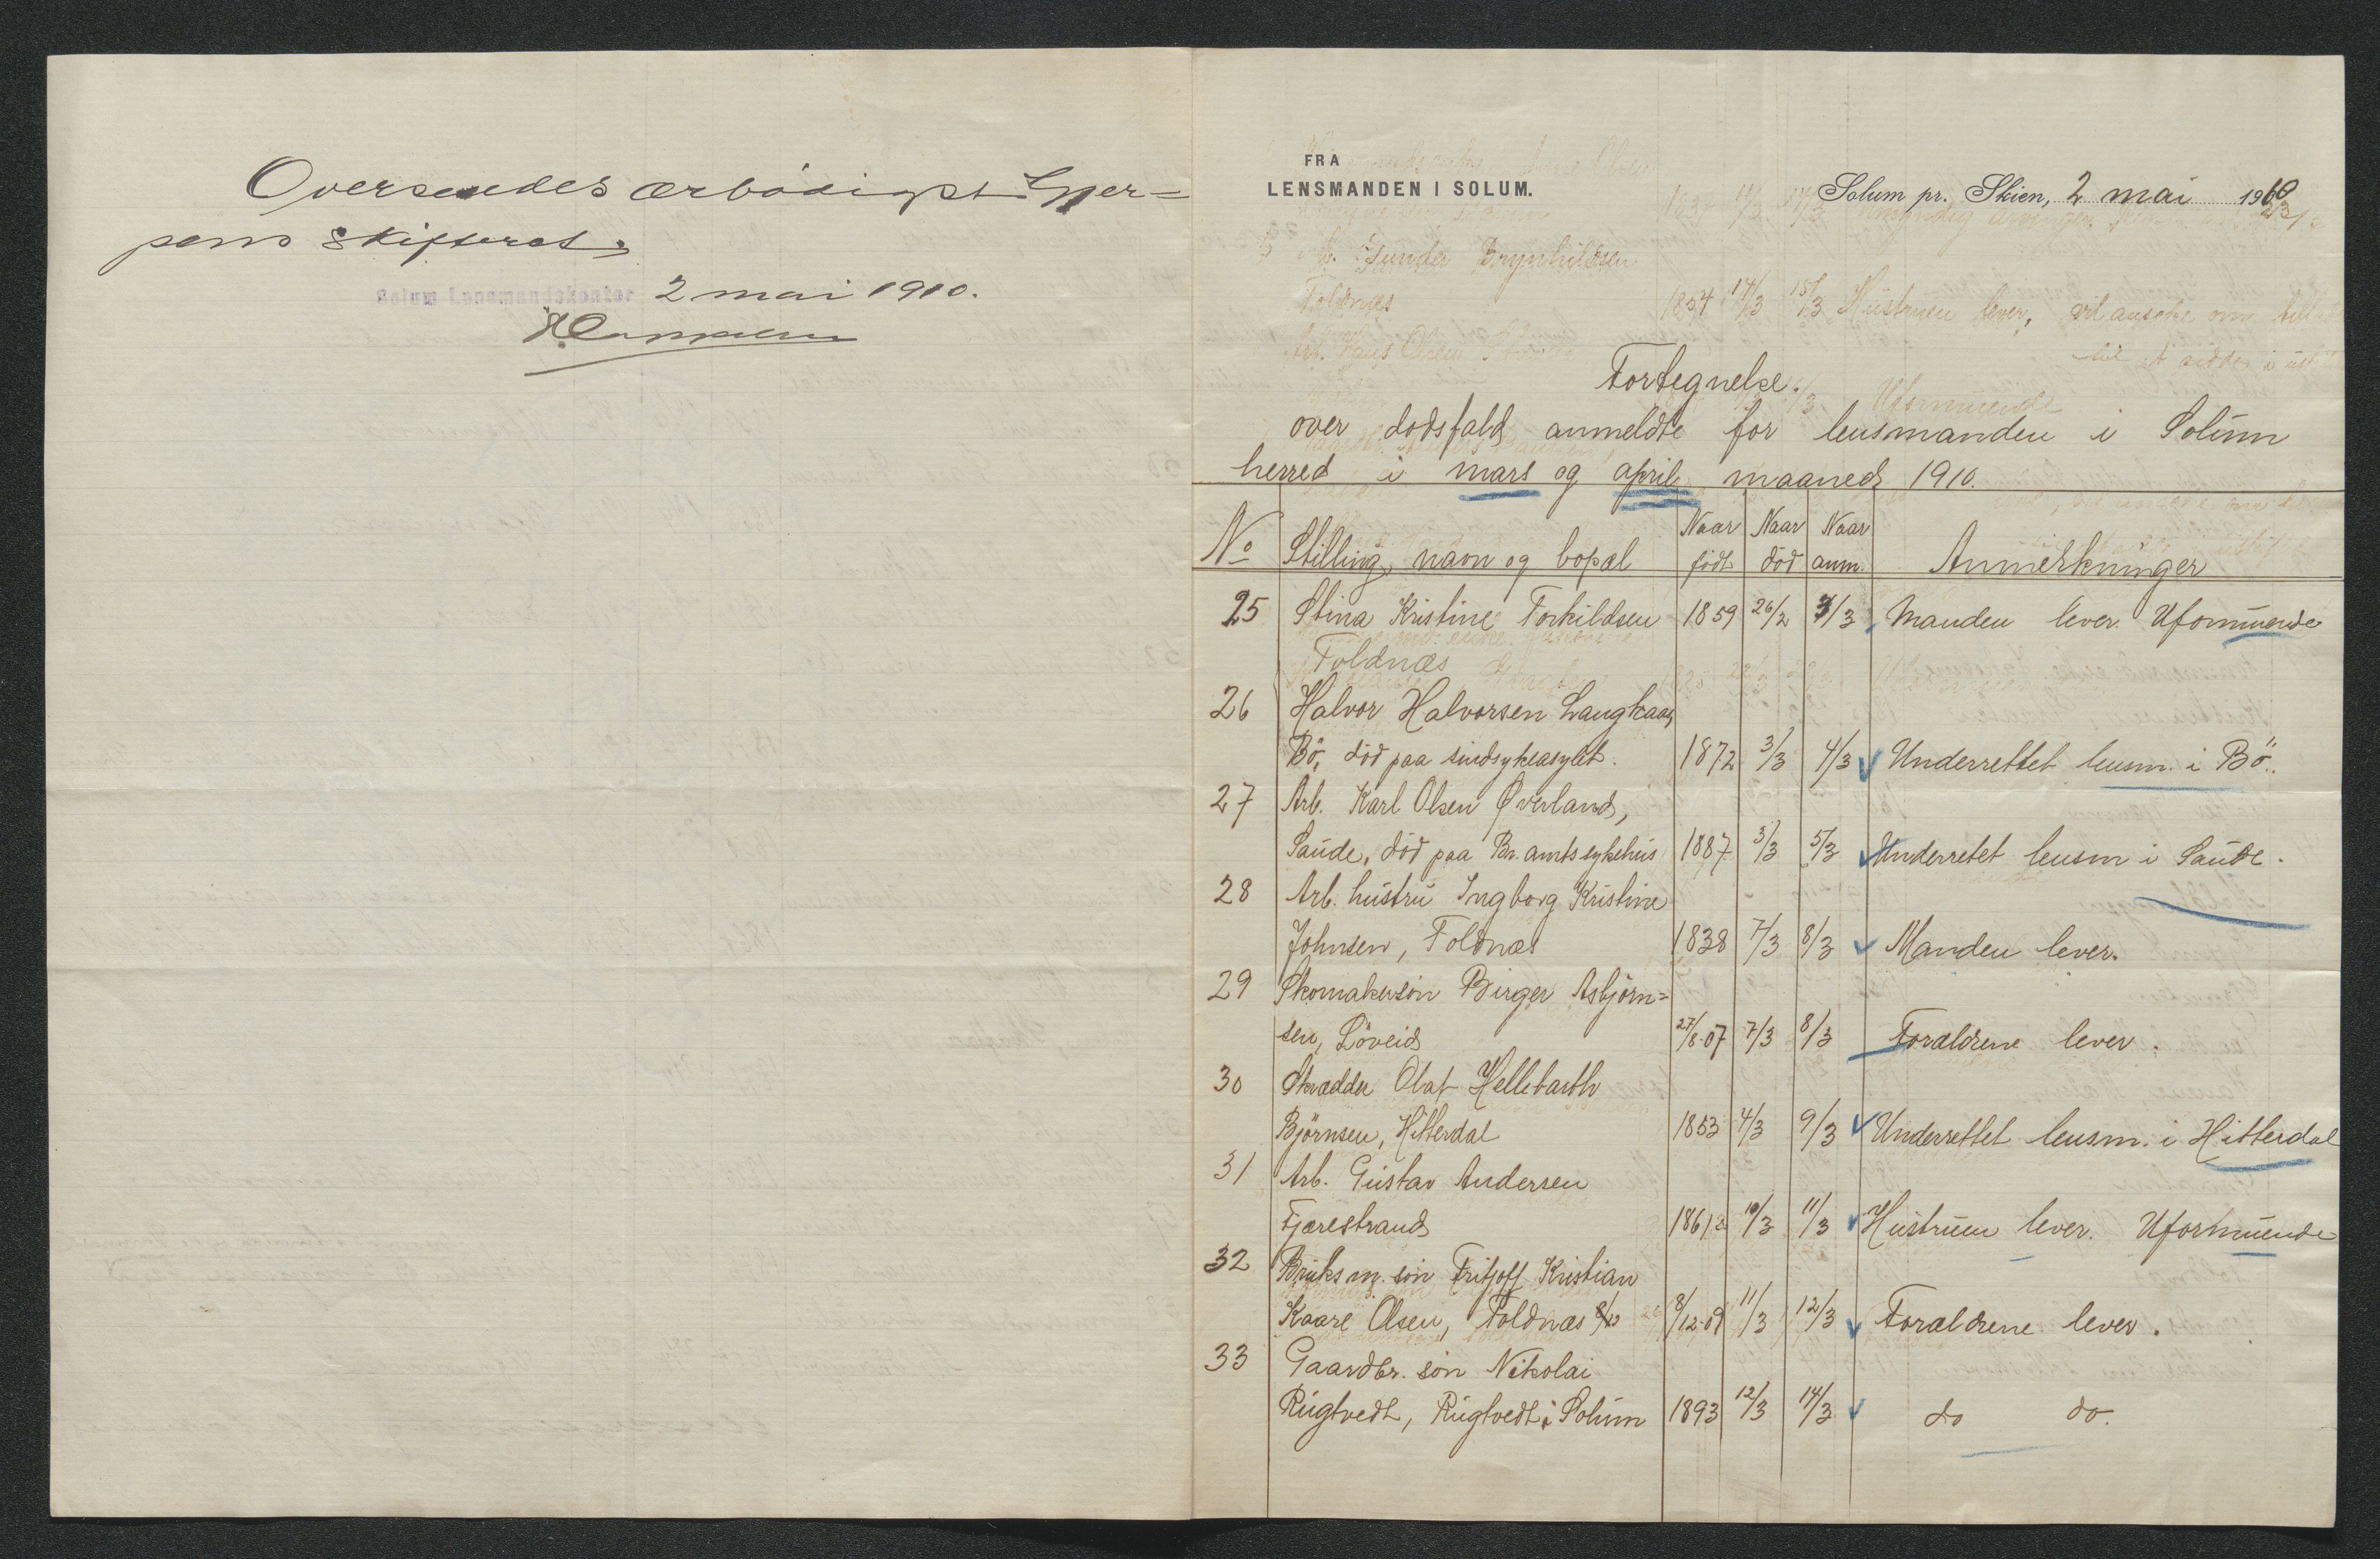 Oversendes ærbødigst Gjer=
pens skifteret,
Solum Lensmandskontor 2 mai 1910.
FRA
LENSMANDEN I SOLUM.
Solum pr. Skien, 2 mai 1910
Fortegnelse.
over dødsfald anmeldte for lensmanden i Solum
herred i mars og april maaned 1910.
No Stilling, navn og bopæl Naar født Naar død Naar anm. Anmerkninger
25 Stina Kristine Torkildsen 1859 26/2 3/3 Manden lever. Uformuende
Foldnæs
26 Halvor Halvorsen Langkaas,
Bö, död paa sindsykeasylet. 1872 3/3 4/3 Underrettet lensm. i Bö.
27 Arb. Karl Olsen Øverland,
Saude, död paa Br. amts sykehus 1887 3/3 5/3 Underretet lensm i Saude.
28 Arb. hustru Ingborg Kristine
Johnsen, Foldnæs 1838 7/3 8/3 Manden lever.
29 Skomakersön Birger Asbjörn=
sen, Löveid 27/8-07 7/3 8/3 Forældrene lever.
30 Skrædder Olaf Hellebarth
Björnsen, Hitterdal 1853 4/3 9/3 Underrettet lensm. i Hitterdal
31 Arb. Gustav Andersen
Fjærestrand 1861 10/3 11/3 Hustruen lever. Uformuende
32 Bruks m. sön Fritjoff Kristian
Kaare Olsen, Foldnæs 8/12-09 11/3 12/3 Forældrene lever.
33 Gaardbr. sön Nikolai
Rugtvedt, Rugtvedt i Solum 1893 12/3 14/3 do do.